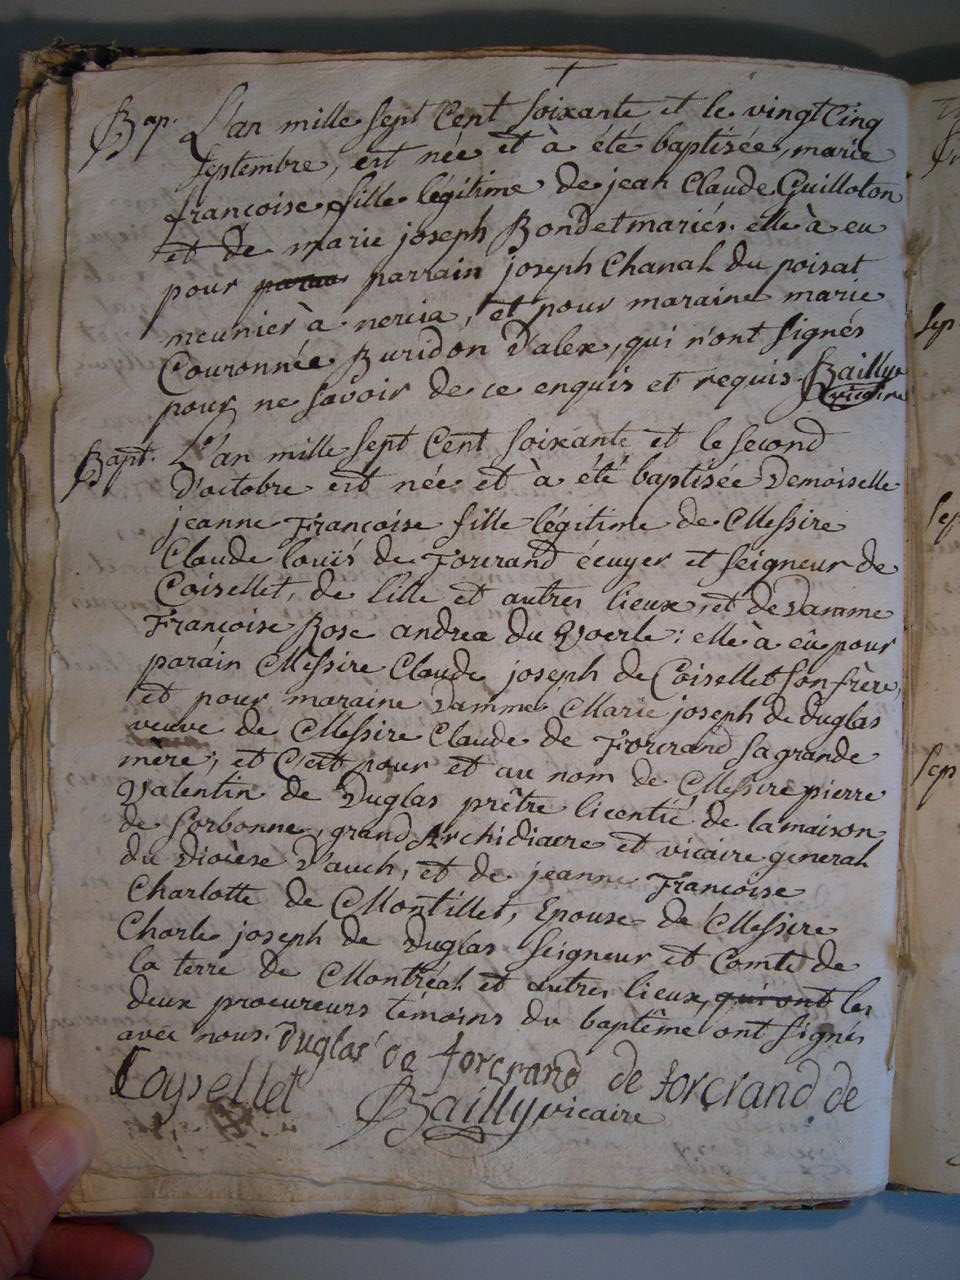 Bap. L'an mille sept Cent soixante et le vingt Cinq
septembre, est née et à été baptisée, marie
francoise fille légitime de jean Claude Guilloton
et de marie joseph Bondet mariés. elle à eu
pour parrain joseph Chanal du poisat
meunier à nercia, et pour maraine marie
Couronnée Buridon d'alex, qui n'ont signés
pour ne savoir de ce enquis et requis. Bailly
vicaire
Bapt. L'an mille sept Cent soixante et le second
d'octobre est née et à été baptisée Demoiselle
jeanne Françoise fille légitime de Messire
Claude louïs de Forcrand écuyer et seigneur de
Coisellet, de lille et autres lieux, et de damme
Françoise Rose andrea du : elle à eû pour
parain Messire Claude joseph de Coisellet son frère,
et pour maraine damme Marie joseph de Duglas
veuve de Messire Claude de Forcrand sa grande
mère, et C'est pour et au nom de Messire pierre
valentin de Duglas prêtre licentié de la maison
de sorbonne, grand Archidiacre et vicaire general
du diocèse d'auch, et de jeanne Francoise
Charlotte de Montillet, Epouse de Messire
Charle joseph de Duglas seigneur et Comte de
la terre de Montréal et autres lieux, qui ont les
deux procureurs témoins du baptême ont signés
avec nous. Duglas de forcrand de forcrand de
Coysellet Bailly vicaire